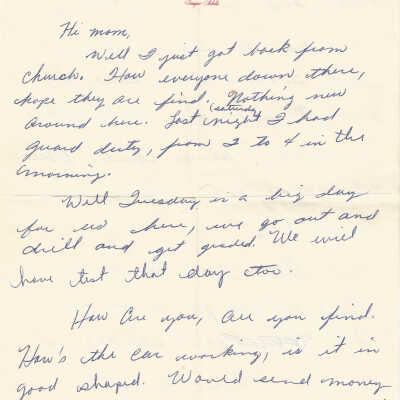 Hi mom,
Well I just got back from
church. How everyone down there,
hope they are find. Nothing new
(saturday)
around here. Last night I had
guard duty, from 2 to 4 in the
morning.
Well Tuesday is a big day
for us here, we go out and
drill and get graded. We will
have test that day too.
How are you, are you find.
How's the car working, is it in
good shaped. Would send money